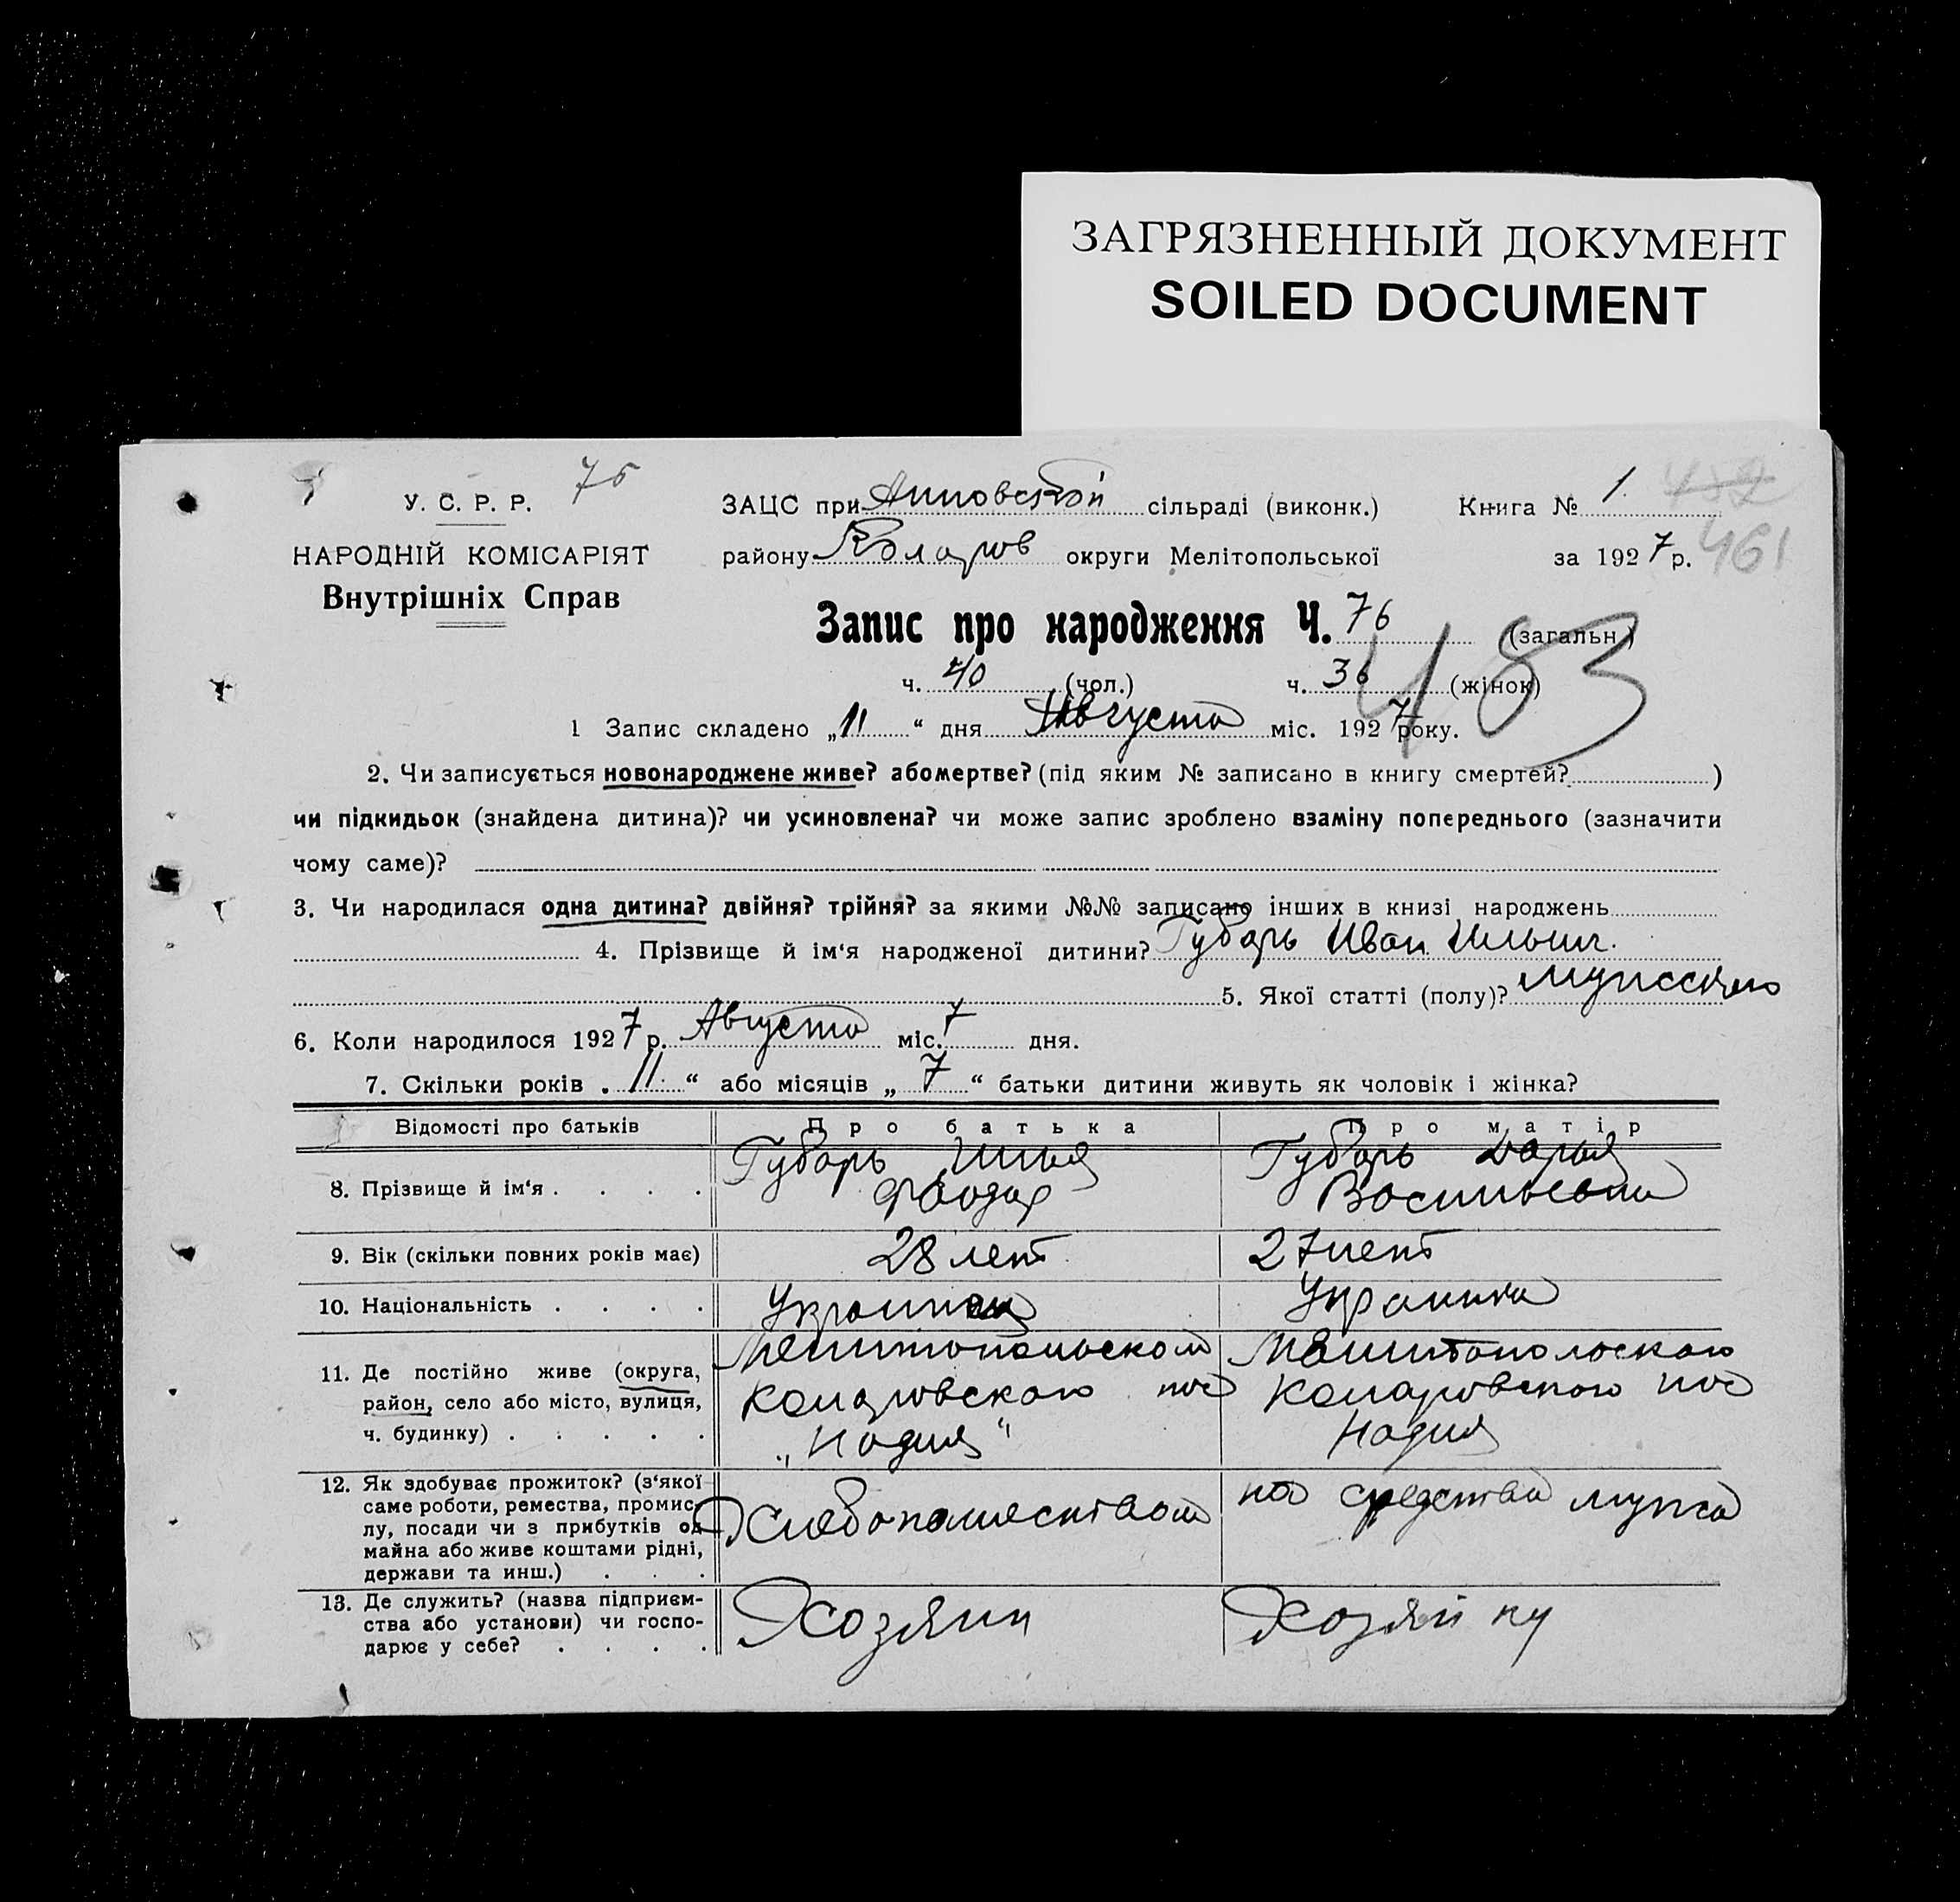 ЗАГРЯЗНЕННЫЙ ДОКУМЕНТ
SOILED DOCUMENT
У. С. Р. Р. 76
НАРОДНІЙ КОМІСАРІЯТ
Внутрішніх Справ
ЗАЦС при Анновской сільраді (виконк.) Книга № 1.
району Коларов округи Мелітопольської за 1927 р. 461
Запис про народження Ч. 76 (загальн.)
483
ч. 40 (чол.) ч. 36 (жінок)
1 Запис складено „11“ дня Августа міс. 1927 року.
2. Чи записується новонароджене живе? або мертве? (під яким № записано в книгу смертей? )
чи підкидьок (знайдена дитина)? чи усиновлена? чи може запис зроблено взаміну попереднього (зазначити
чому саме)?
3. Чи народилася одна дитина? двійня? трійня? за якими №№ записано інших в книзі народжень
4. Прізвище й ім‘я народженої дитини? Губарь Иван Ильич.
5. Якої статті (полу)? Мужского
6. Коли народилося 1927 р. Августа міс. 7 дня.
7. Скільки років „11“ або місяців „7“ батьки дитини живуть як чоловік і жінка?
Відомості про батьків Про батька Про матір
8. Прізвище й ім‘я . . . . Губарь Илья Губарь Дарья
Феодор Васильевна
9. Вік (скільки повних років має) 28 лет 27 лет
10. Національність . . . . Украинец Украинка
11. Де постійно живе (округа, район, село або місто, вулиця, ч. будинку) . . . . .
Мелитопольской Мелитопольского
Коларовского пос Коларовского пос
„Надия“ Надия
12. Як здобуває прожиток? (з‘якої
саме роботи, ремества, промис-
лу, посади чи з прибутків од
майна або живе коштами рідні,
держави та инш.) . . .
Хлебопашеством на средства мужа
13. Де служить? (назва підприєм-
ства або установи) чи госпо-
дарює у себе? . . . .
Хозяин Хозяйку